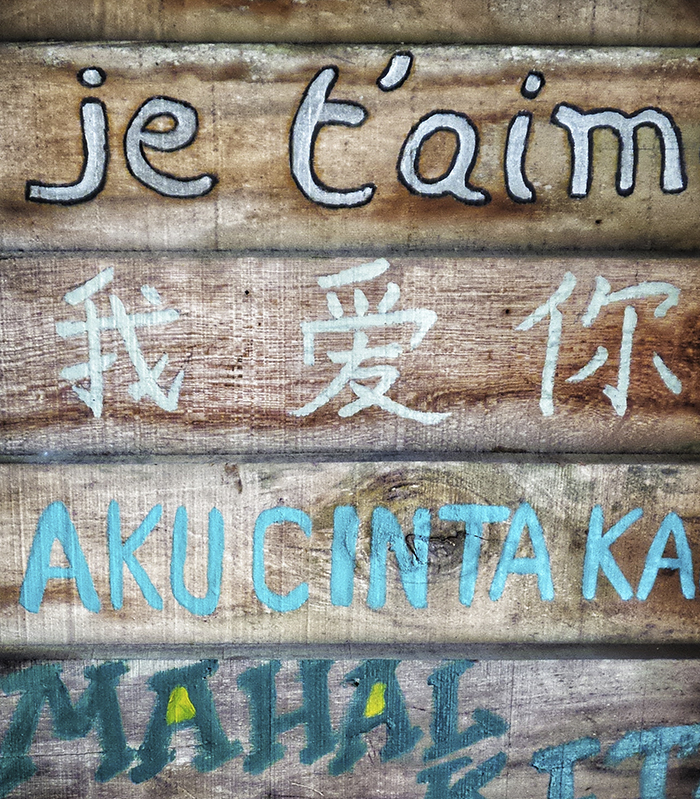 je t'aim
我爱你
AKU CINTA KA
MAHAL
KIT